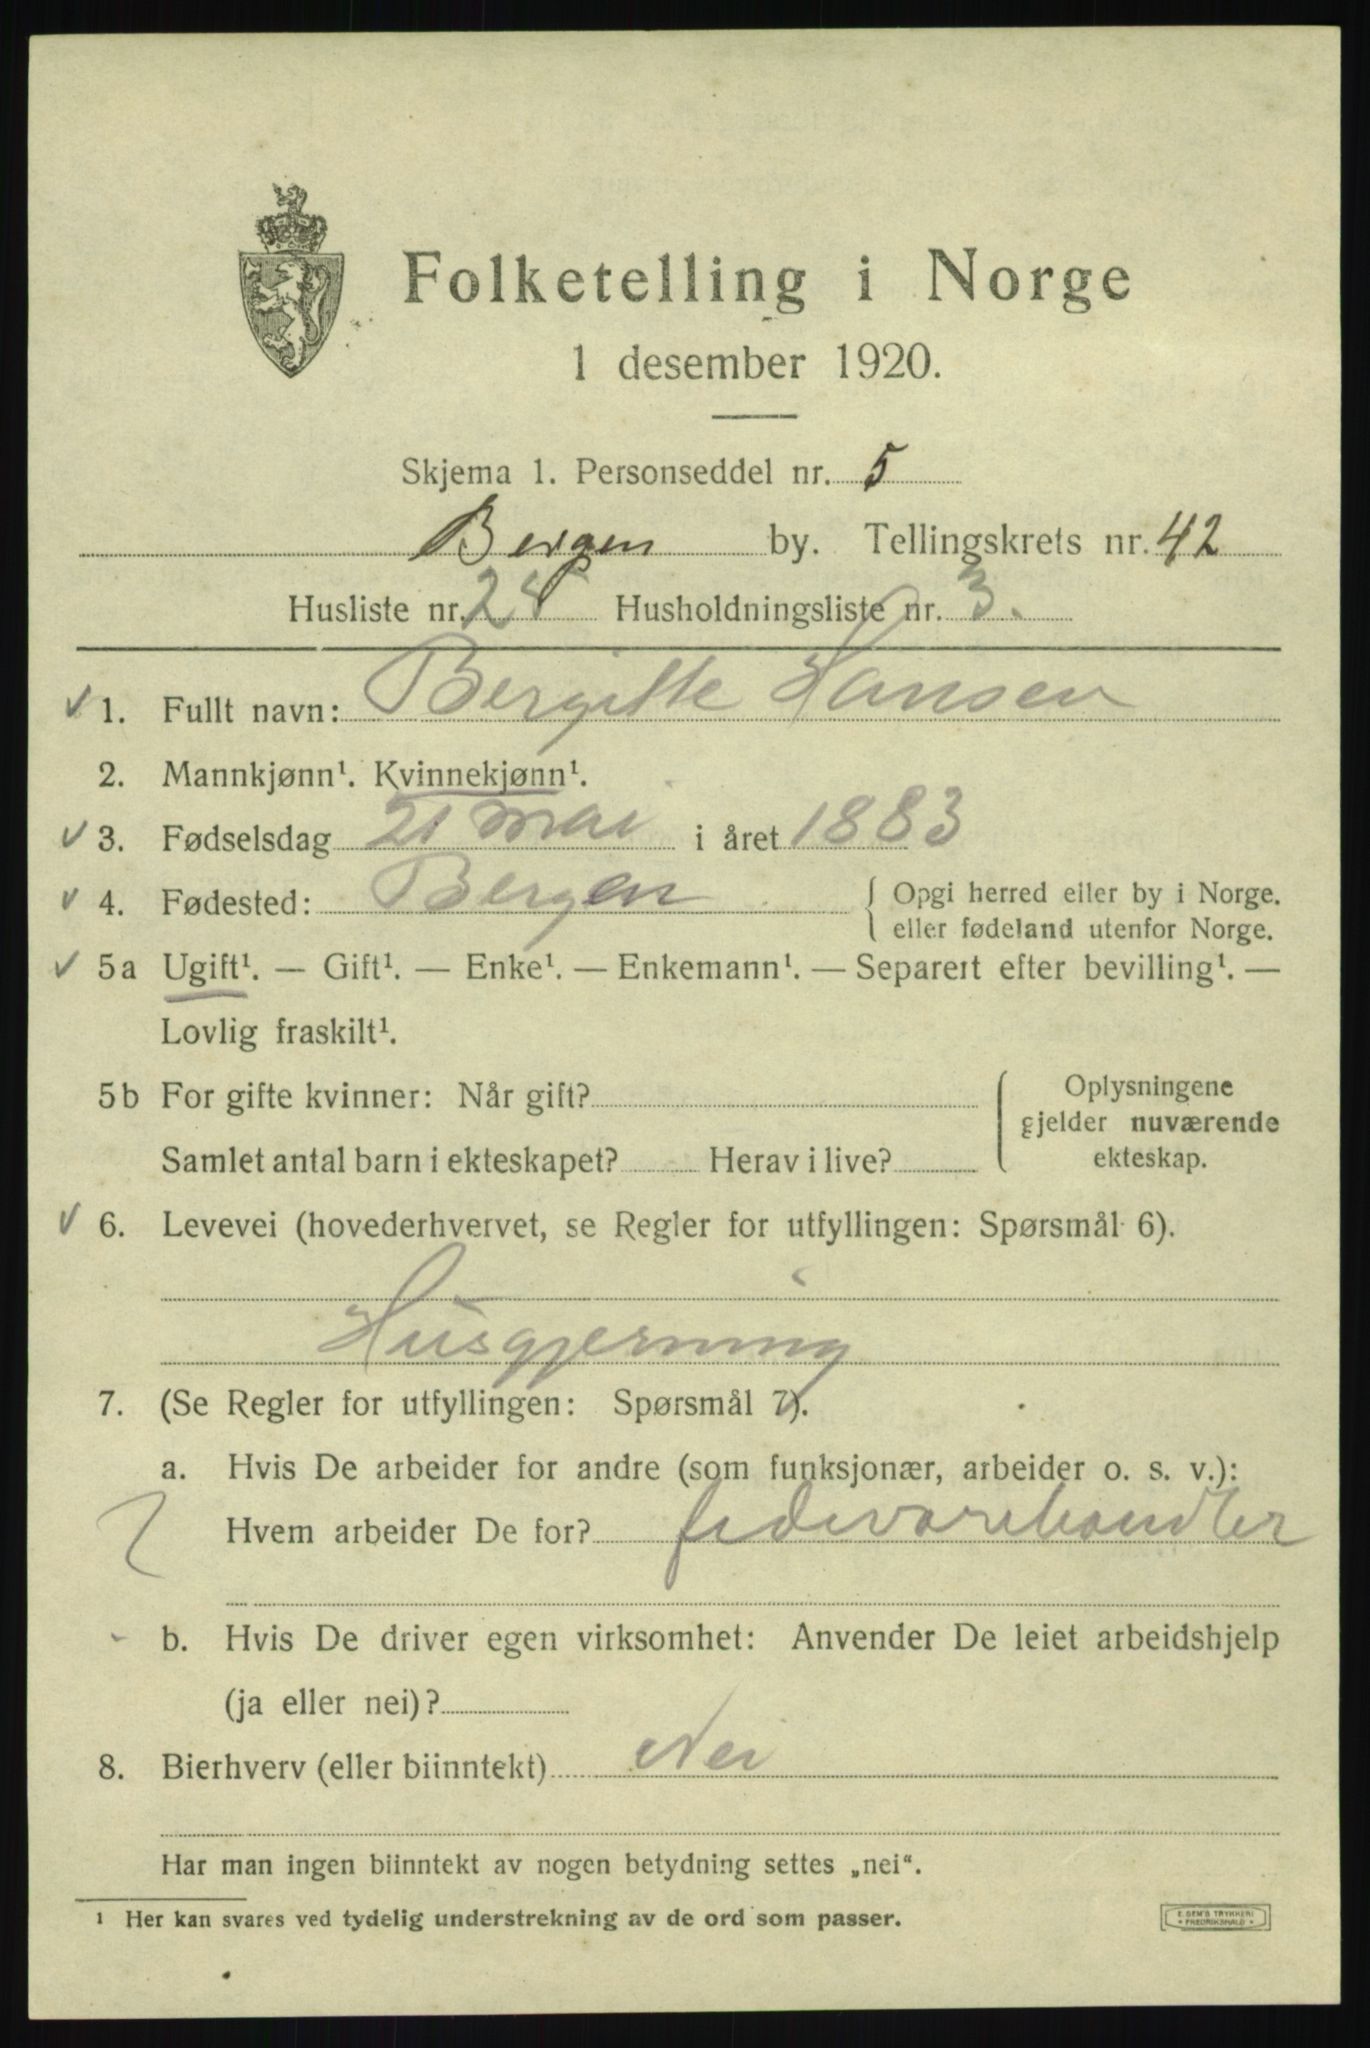 Folketelling i Norge
1 desember 1920.
Skjema 1. Personseddel nr. 5
Bergen by. Tellingskrets nr. 42
Husliste nr. 28 Husholdningsliste nr. 3.
1. Fullt navn: Bergitte Hansen
2. Mannkjønn¹. Kvinnekjønn¹.
3. Fødselsdag 21 mai i året 1883
4. Fødested: Bergen { Opgi herred eller by i Norge.
eller fødeland utenfor Norge.
5a Ugift¹. — Gift¹. — Enke¹. — Enkemann¹. — Separert efter bevilling¹. —
Lovlig fraskilt¹.
5b For gifte kvinner: Når gift? { Oplysningene
gjelder nuværende
Samlet antal barn i ekteskapet? Herav i live? ekteskap.
6. Levevei (hovederhvervet, se Regler for utfyllingen: Spørsmål 6).
Husgjerning
7. (Se Regler for utfyllingen: Spørsmål 7).
a. Hvis De arbeider for andre (som funksjonær, arbeider o. s. v.):
Hvem arbeider De for? fedevarehandler
b. Hvis De driver egen virksomhet: Anvender De leiet arbeidshjelp
(ja eller nei)?
8. Bierhverv (eller biinntekt) Nei
Har man ingen biinntekt av nogen betydning settes „nei“.
¹ Her kan svares ved tydelig understrekning av de ord som passer.
E. SEM'S TRYKKERI
• FREDRIKSHALD •